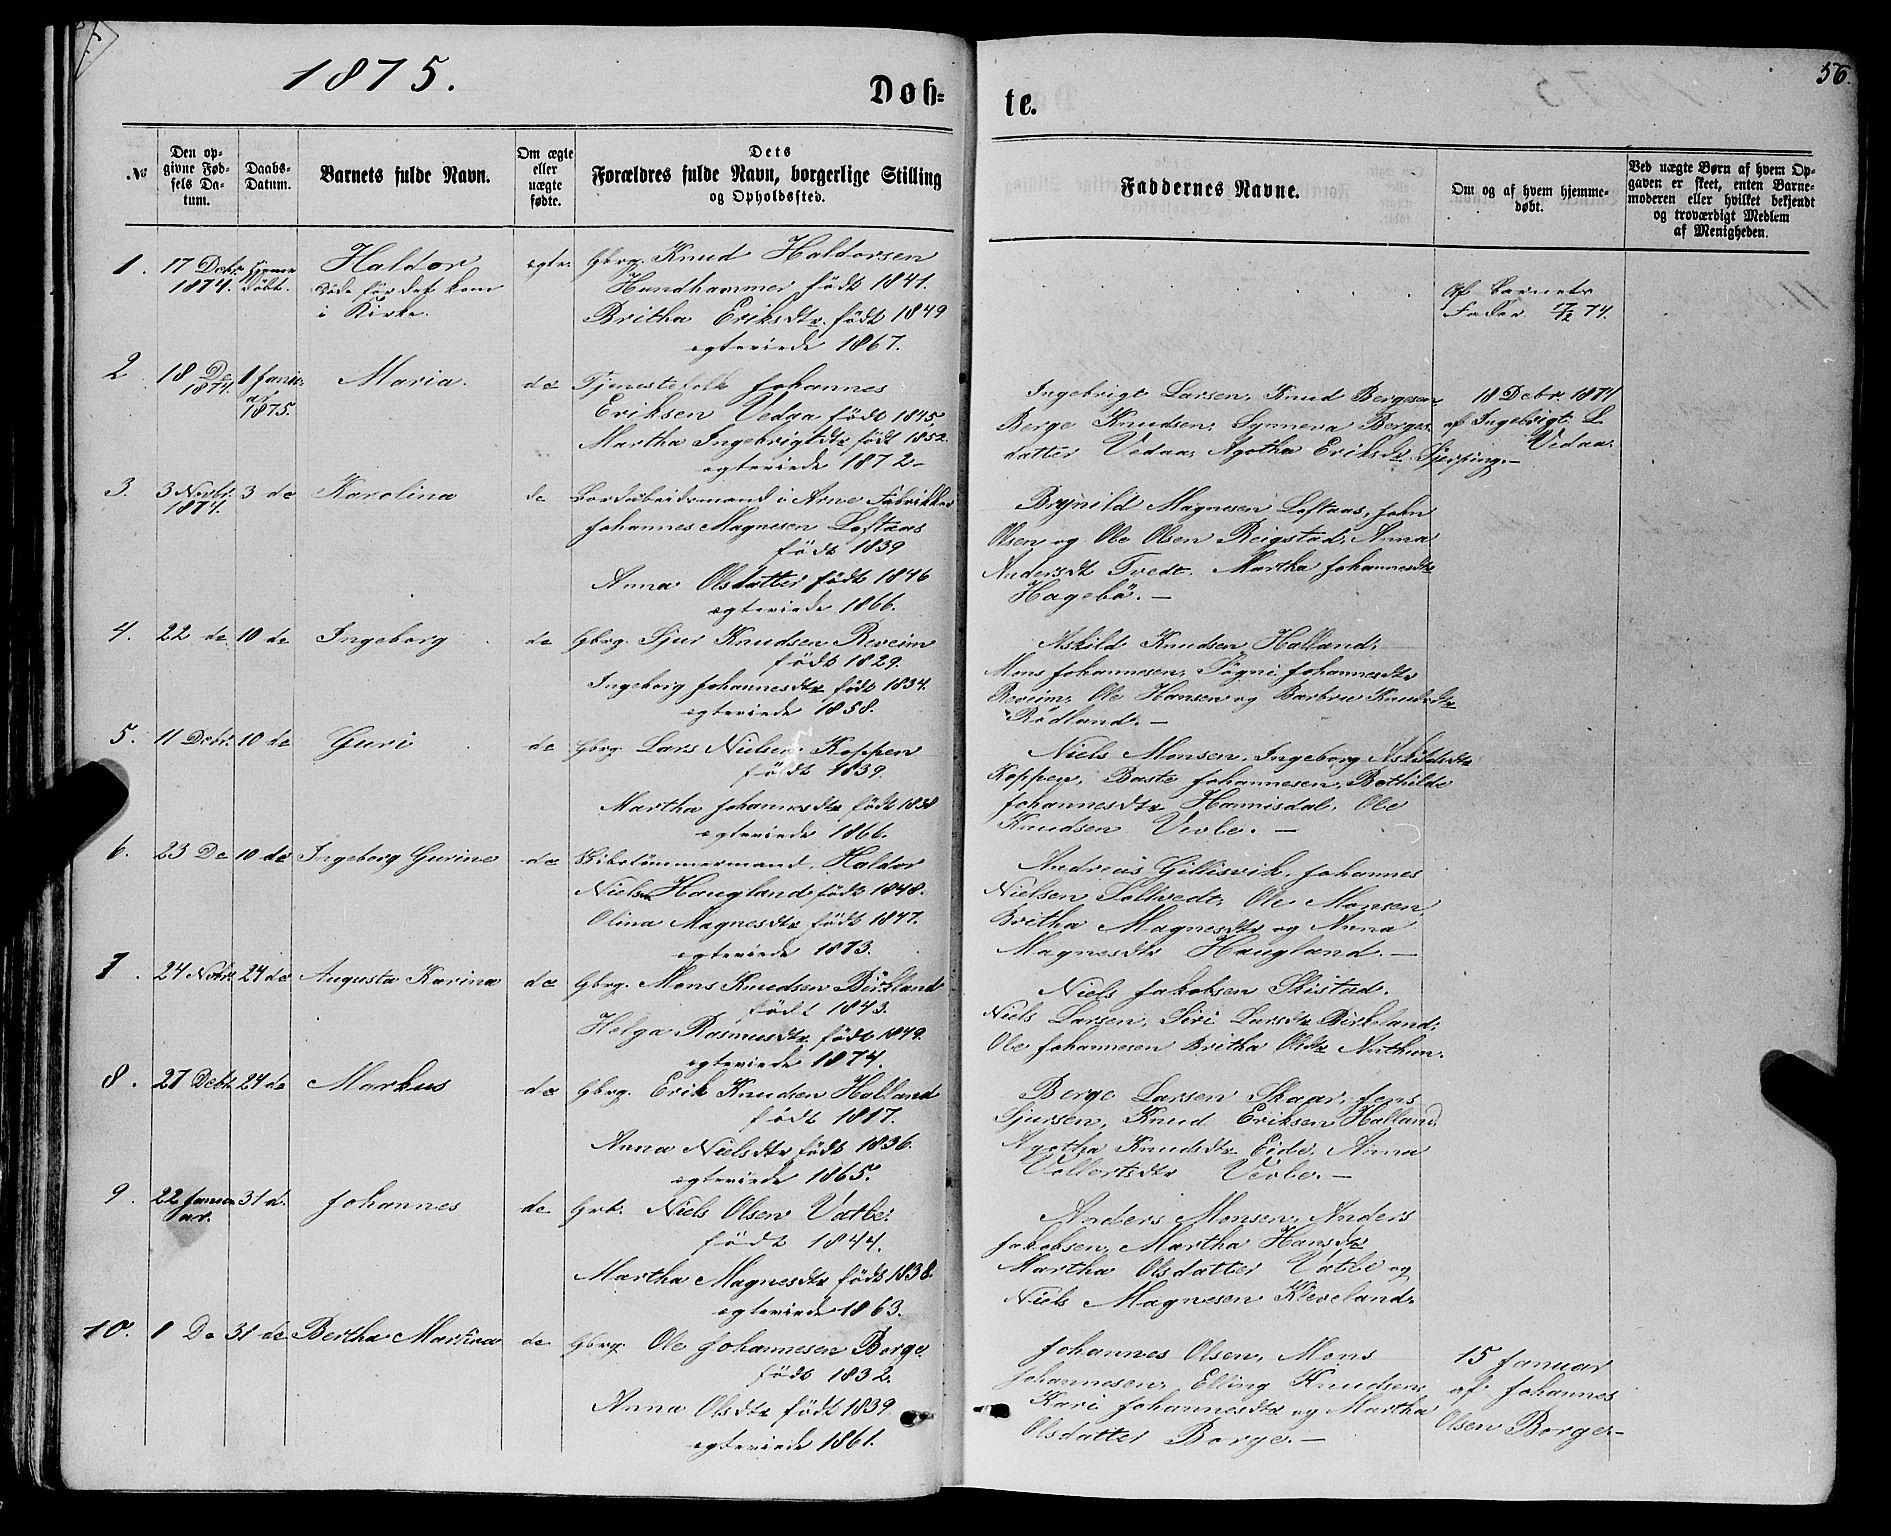 1875.
Døb=
te.
56.
№
Den op-
givne Fød-
sels Da-
tum.
Daabs-
Datum.
Barnets fulde Navn.
Om ægte
eller
uægte
fødte.
Dets
Forældres fulde Navn, borgerlige Stilling
og Opholdssted.
Faddernes Navne.
Om og af hvem hjemme-
døbt.
Ved uægte Børn af hvem Op-
gaven er skeet, enten Barne-
moderen eller hvilket bekjendt
og troværdigt Medlem
af Menigheden.
1.
17 Decbr.
1874.
Hjemme
døbt.
Haldor
døde før det kom
i Kirke.
ægte.
Gbrg. Knud Haldorsen
Hundhammer født 1841.
Britha Eriksdtr. født 1849
ægteviede 1867.
Af Barnets
Fader 17/12 74.
2
18 De
1874.
1 Janu-
ar
1875.
Maria.
de
Tjenestefolk Johannes
Eriksen Vedaa født 1845,
Martha Ingebrigtdtr født 1852
ægteviede 1872-
Ingebrigt Larsen, Knud Bergesen
Berge Knudsen, Synneva Berges-
datter Vedaa, Agotha Eriksdtr
18 Debr. 1874
af Ingebrigt L
Vedaa.
3.
3 Novbr.
1874.
3 de
Karolina
de
Jordarbeidsmand i Arne Fabrikker
Johannes Magnesen Loftaas
født 1839
Anna Olsdatter født 1846
ægteviede 1866.
Brynild Magnesen Loftaas, John
Olsen og Ole Olsen Reigstad, Anna
Andersdt Tvedt. Martha Johannesdtr
Hagebö. —
4.
22 de
10 de
Ingeborg
de
Gbrg. Sjur Knudsen Reveim
født 1829.
Ingeborg Johannesdtr født 1834.
ægteviede 1858.
Askild Knudsen Halland,
Mons Johannesen, Sögni Johannesdtr
Reveim, Ole Hansen og Barbru Knudsdtr
Rödland. —
5.
11 Debr.
10 de
Guri
de
Gbrg. Lars Nielsen Koppen
født 1839.
Martha Johannesdtr født 1838
ægteviede 1866.
Niels Monsen, Ingeborg Askildsdtr
Koppen, Baste Johannesen, Bothilde
Johannesdtr Hannisdal, Ole
Knudsen Vevle. —
6.
23 De
10 de
Ingeborg Gurine
de
Skibstømmermand Haldor
Nielsen Haugland født 1848.
Olina Magnesdtr født 1847.
ægteviede 1873.
Andreas Gillisvik, Johannes
Nielsen Toltvedt, Ole Monsen,
Britha Magnesdtr og Anna
Magnesdtr Haugland. —
7.
24 Novbr
24 de
Augusta Karina
de
Gbrg. Mons Knudsen Birkland
født 1843.
Helga Rasmusdtr født 1849.
ægteviede 1874.
Niels Jakobsen Skistad.
Niels Larsen, Siri Larsdtr Birkeland,
Ole Johannesen Britha Olsdtr Nuthun.
8.
27 Debr
24 de
Markus
de
Gbrg. Erik Knudsen Halland
født 1817.
Anna Nielsdtr født 1836.
ægteviede 1865.
Berge Larsen Skaar, Jens
Sjursen, Knud Eriksen Halland.
Agotha Knudsdtr Eide, Anna
Vollertsdtr Vevle. —
9.
22 Janu-
ar.
31 d.
Johannes
de
Grb. Niels Olsen Vatle.
født 1844.
Martha Magnesdtr født 1838.
ægteviede 1863.
Anders Monsen, Anders
Jakobsen, Martha Hansdtr
Martha Olsdatter Vatle og
Niels Magnesen Kleveland.
10.
1 De
31 de
Bertha Martina
de
Gbrg. Ole Johannesen Borge
født 1832.
Anna Olsdtr født 1839
ægteviede 1861.
Johannes Olsen, Mons
Johannesen, Elling Knudsen,
Kari Johannesdtr og Martha
Olsdatter Borge. —
15 Januar
af Johannes
Olsen Borge—